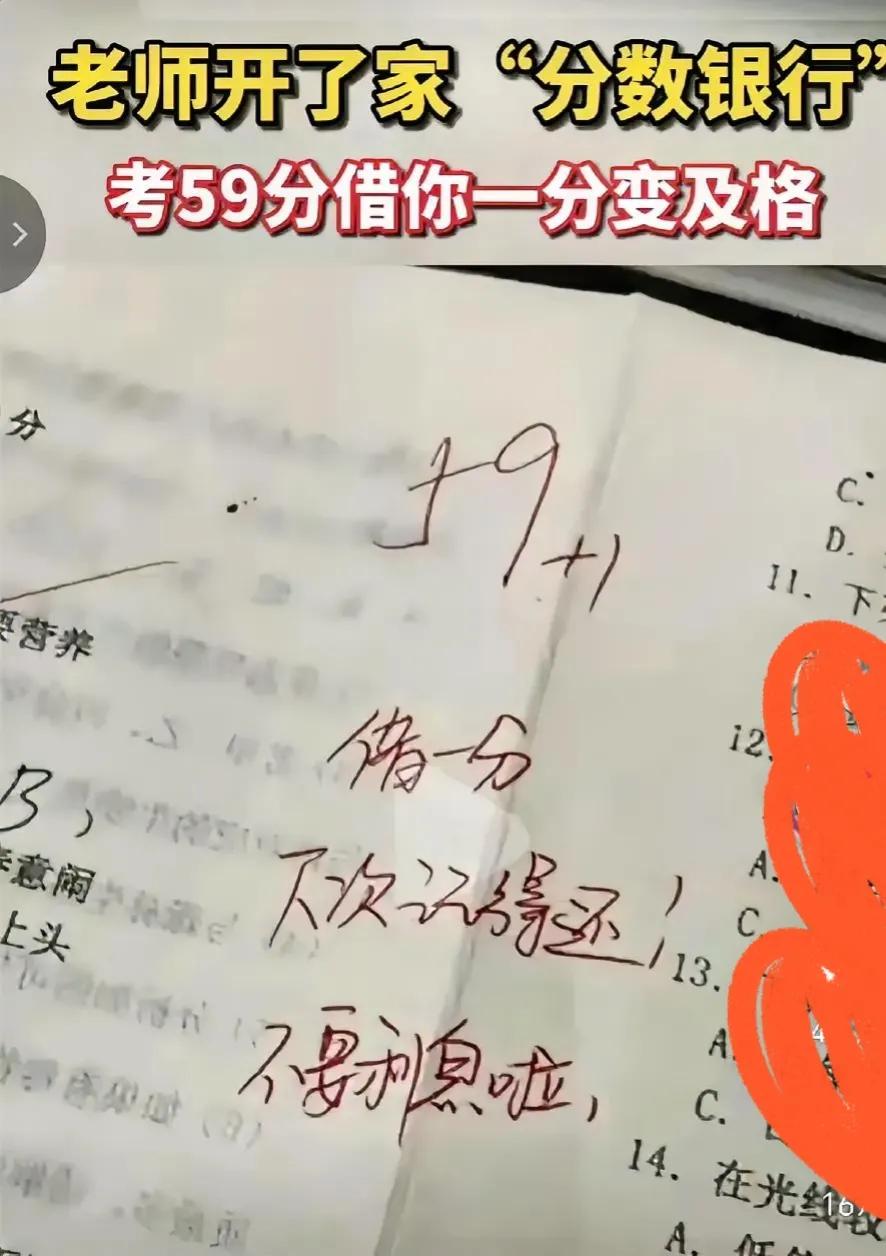 老师开了家“分数银行”
考59分借你一分变及格
分
59+1
C.
D.
11. 下
要营养
借一分
12.
B，
意闹
A.
下次记得还！
上头
C.
13.
不要利息啦，
A.
C.
14. 在光线较
A.